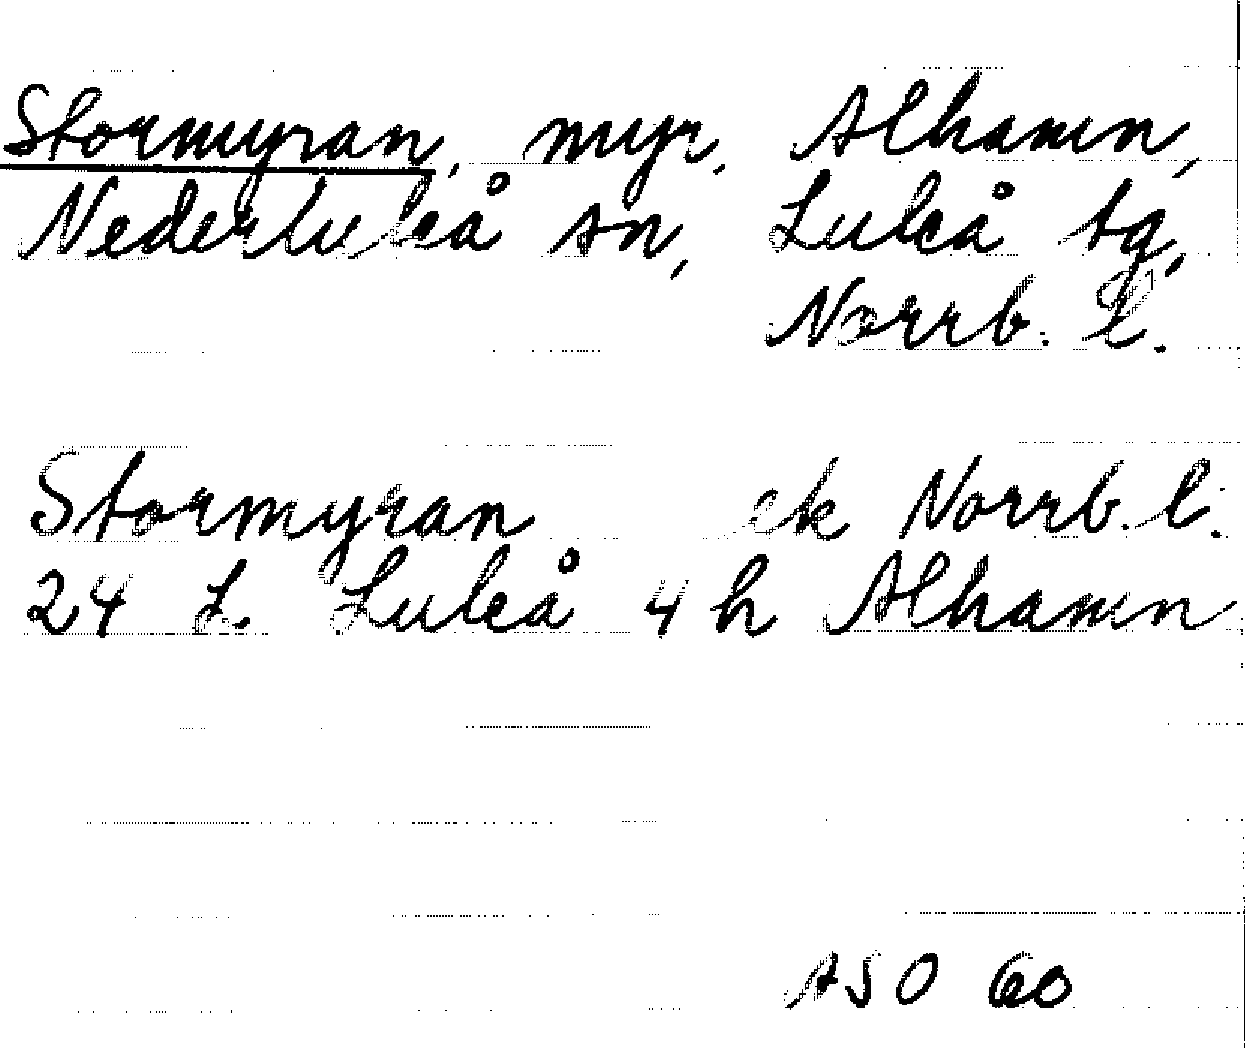 Stormyran, myr, Alhamn,
Nederluleå sn, Luleå tg,
Norrb. l.
Stormyran ek Norrb. l.
24 L. Luleå 4 h Alhamn
ASO 60